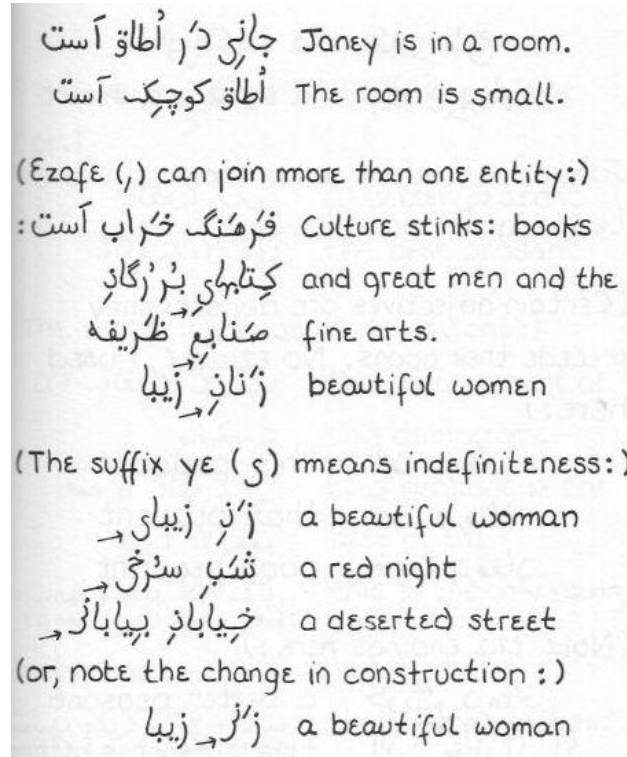 جانِی دَر اُطاق اَست Janey is in a room.
اُطاق کوچِک اَست The room is small.
(Ezafe (ِ) can join more than one entity:)
فَرهَنگ خَراب اَست: Culture stinks: books
کِتابهایِ بُزُرگانِ and great men and the
صَنایِعِ ظَریفه fine arts.
زَنانِ زیبا beautiful women
(The suffix ye (ی) means indefiniteness:)
زَنِ زیبای a beautiful woman
شَبِ سُرخی a red night
خیابانِ a deserted street
(or, note the change in construction:)
زیبا a beautiful woman